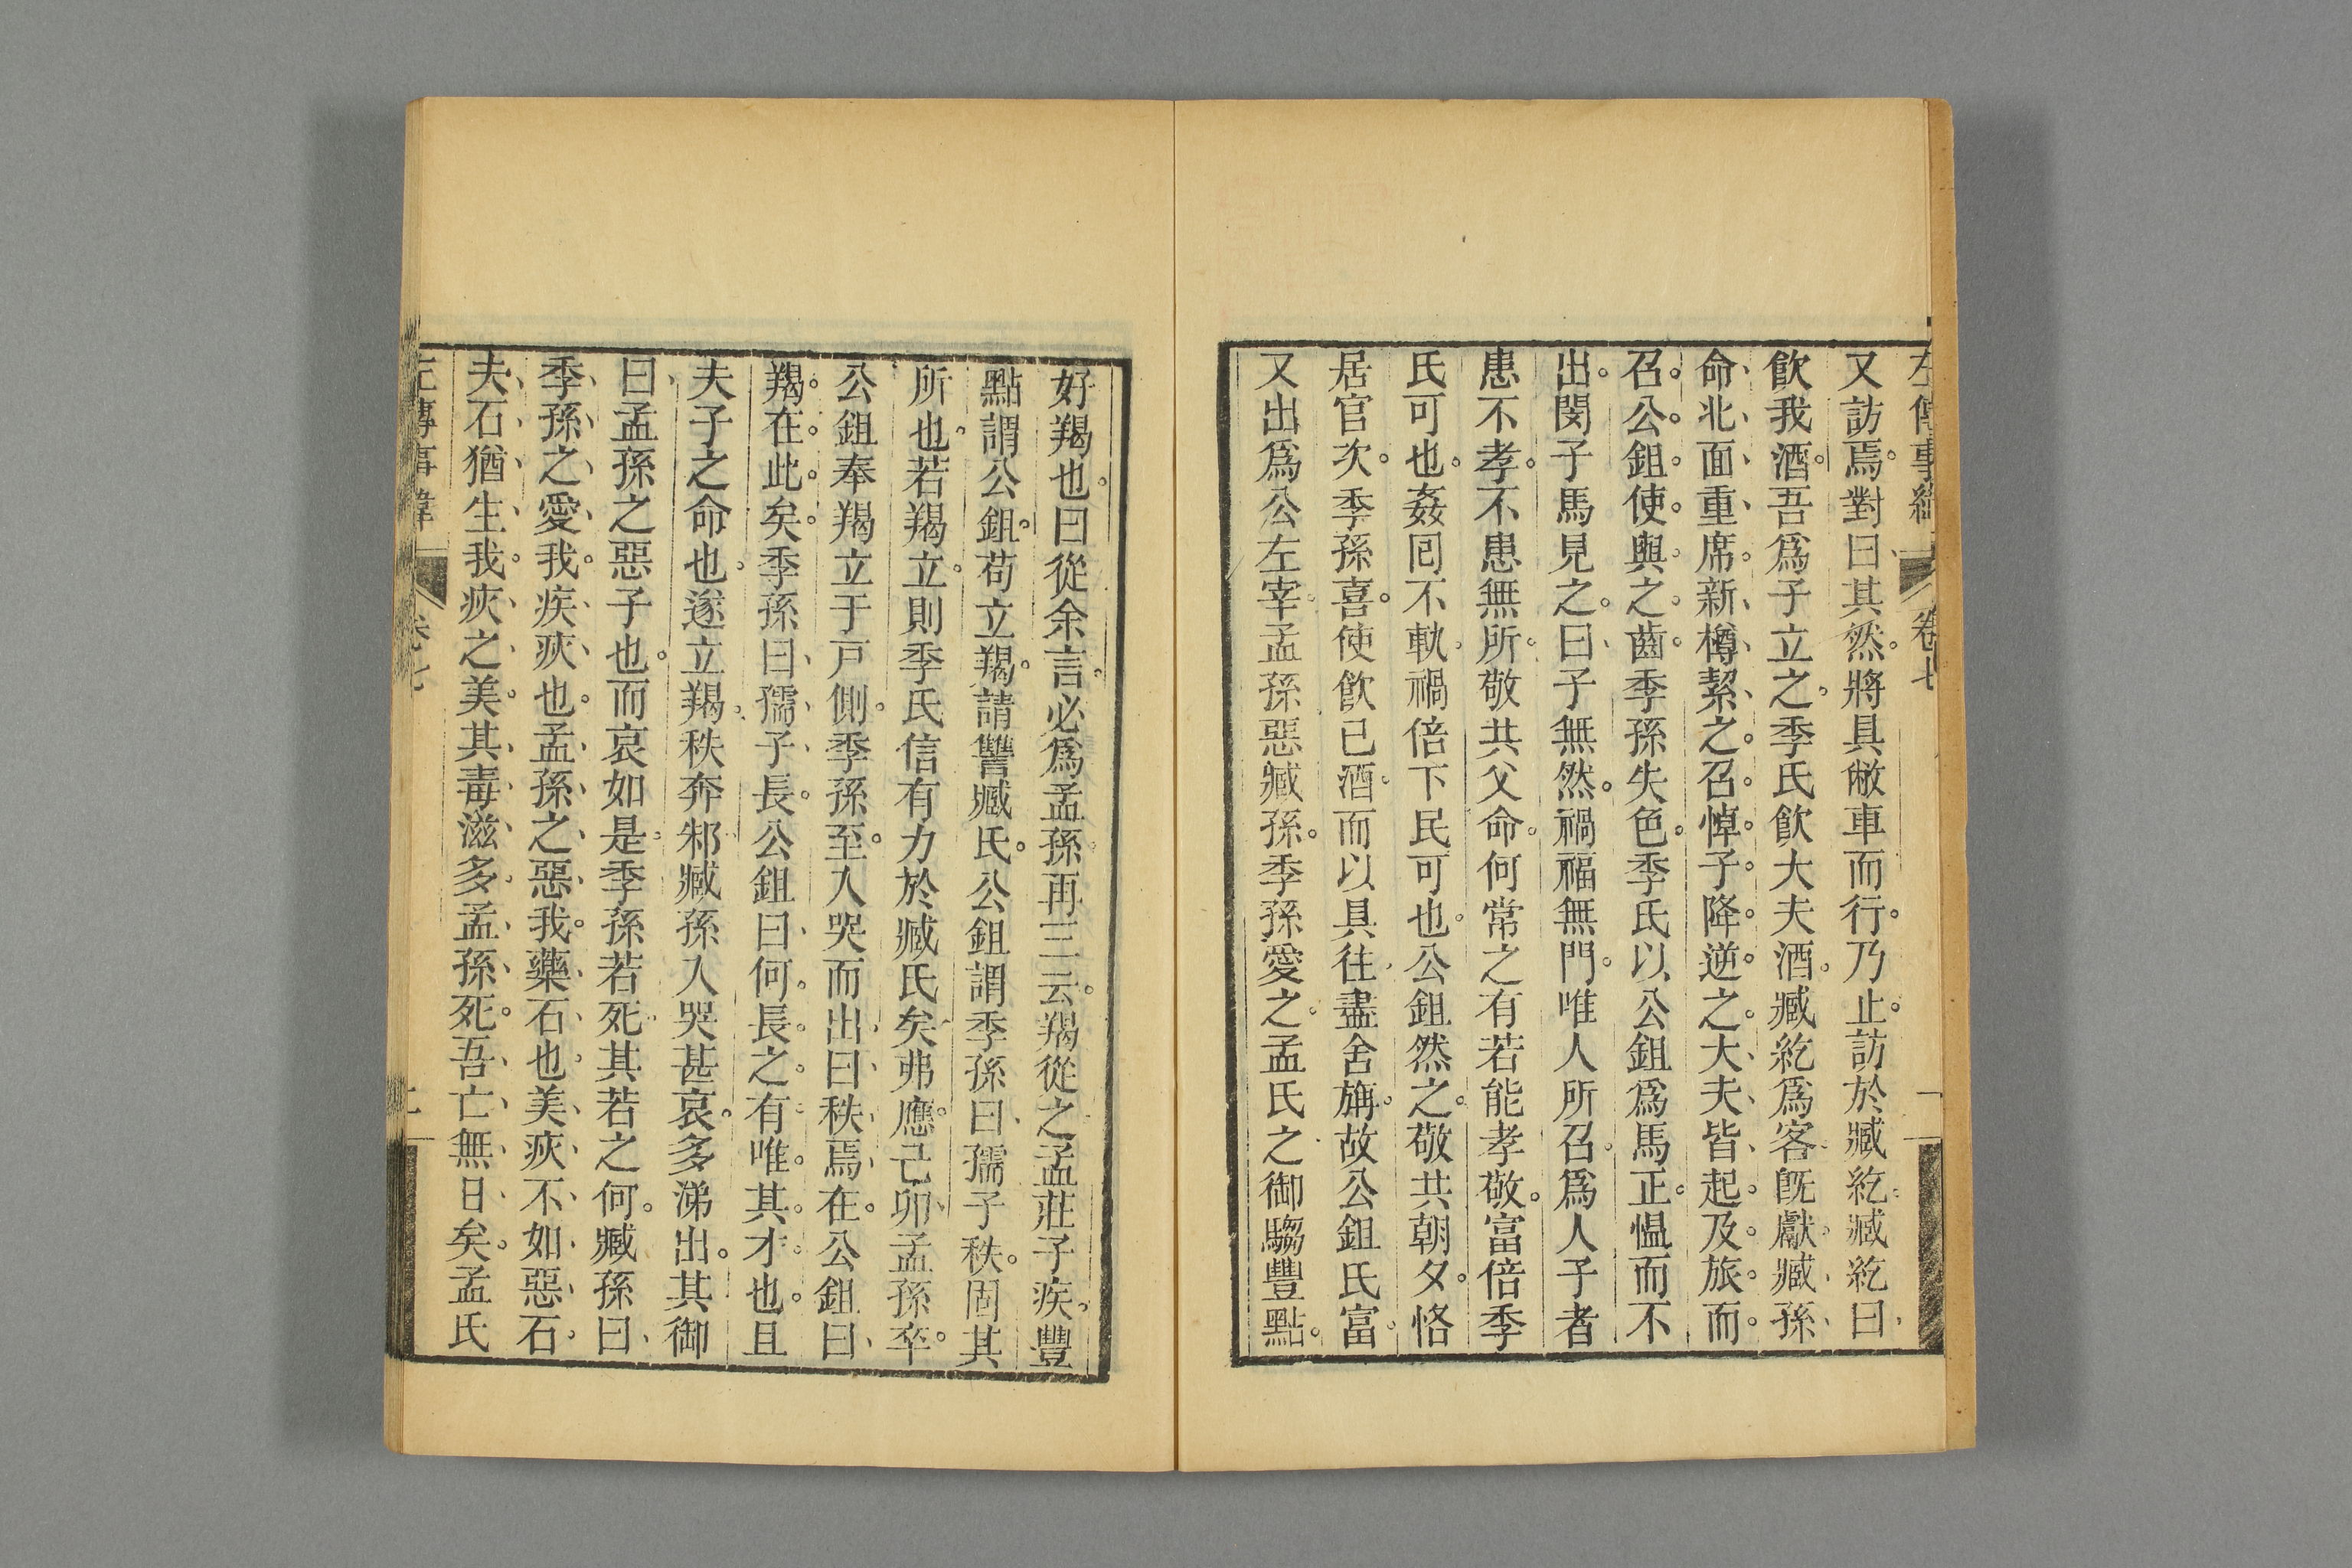 左傳事緯 卷七 一
又訪焉對曰其然將具敝車而行乃止訪於臧紇臧紇曰
飮我酒吾爲子立之季氏飮大夫酒臧紇爲客旣獻臧孫
命北面重席新樽絜之召悼子降逆之大夫皆起及旅而
召公鉏使與之齒季孫失色季氏以公鉏爲馬正慍而不
出閔子馬見之曰子無然禍福無門唯人所召爲人子者
患不孝不患無所敬共父命何常之有若能孝敬富倍季
氏可也姦囘不軌禍倍下民可也公鉏然之敬共朝夕恪
居官次季孫喜使飮已酒而以具往盡舍旃故公鉏氏富
又出爲公左宰孟孫惡臧孫季孫愛之孟氏之御騶豐點
好羯也曰從余言必爲孟孫再三云羯從之孟莊子疾豐
點謂公鉏苟立羯請讐臧氏公鉏謂季孫曰孺子秩固其
所也若羯立則季氏信有力於臧氏矣弗應己卯孟孫卒
公鉏奉羯立于戸側季孫至入哭而出曰秩焉在公鉏曰
羯在此矣季孫曰孺子長公鉏曰何長之有唯其才也且
夫子之命也遂立羯秩奔邾臧孫入哭甚哀多涕出其御
曰孟孫之惡子也而哀如是季孫若死其若之何臧孫曰
季孫之愛我疾疢也孟孫之惡我藥石也美疢不如惡石
夫石猶生我疢之美其毒滋多孟孫死吾亡無日矣孟氏
左傳事緯 卷七